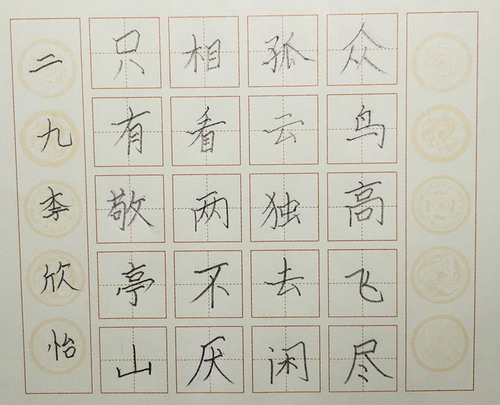 众鸟高飞尽
孤云独去闲
相看两不厌
只有敬亭山
二九李欣怡